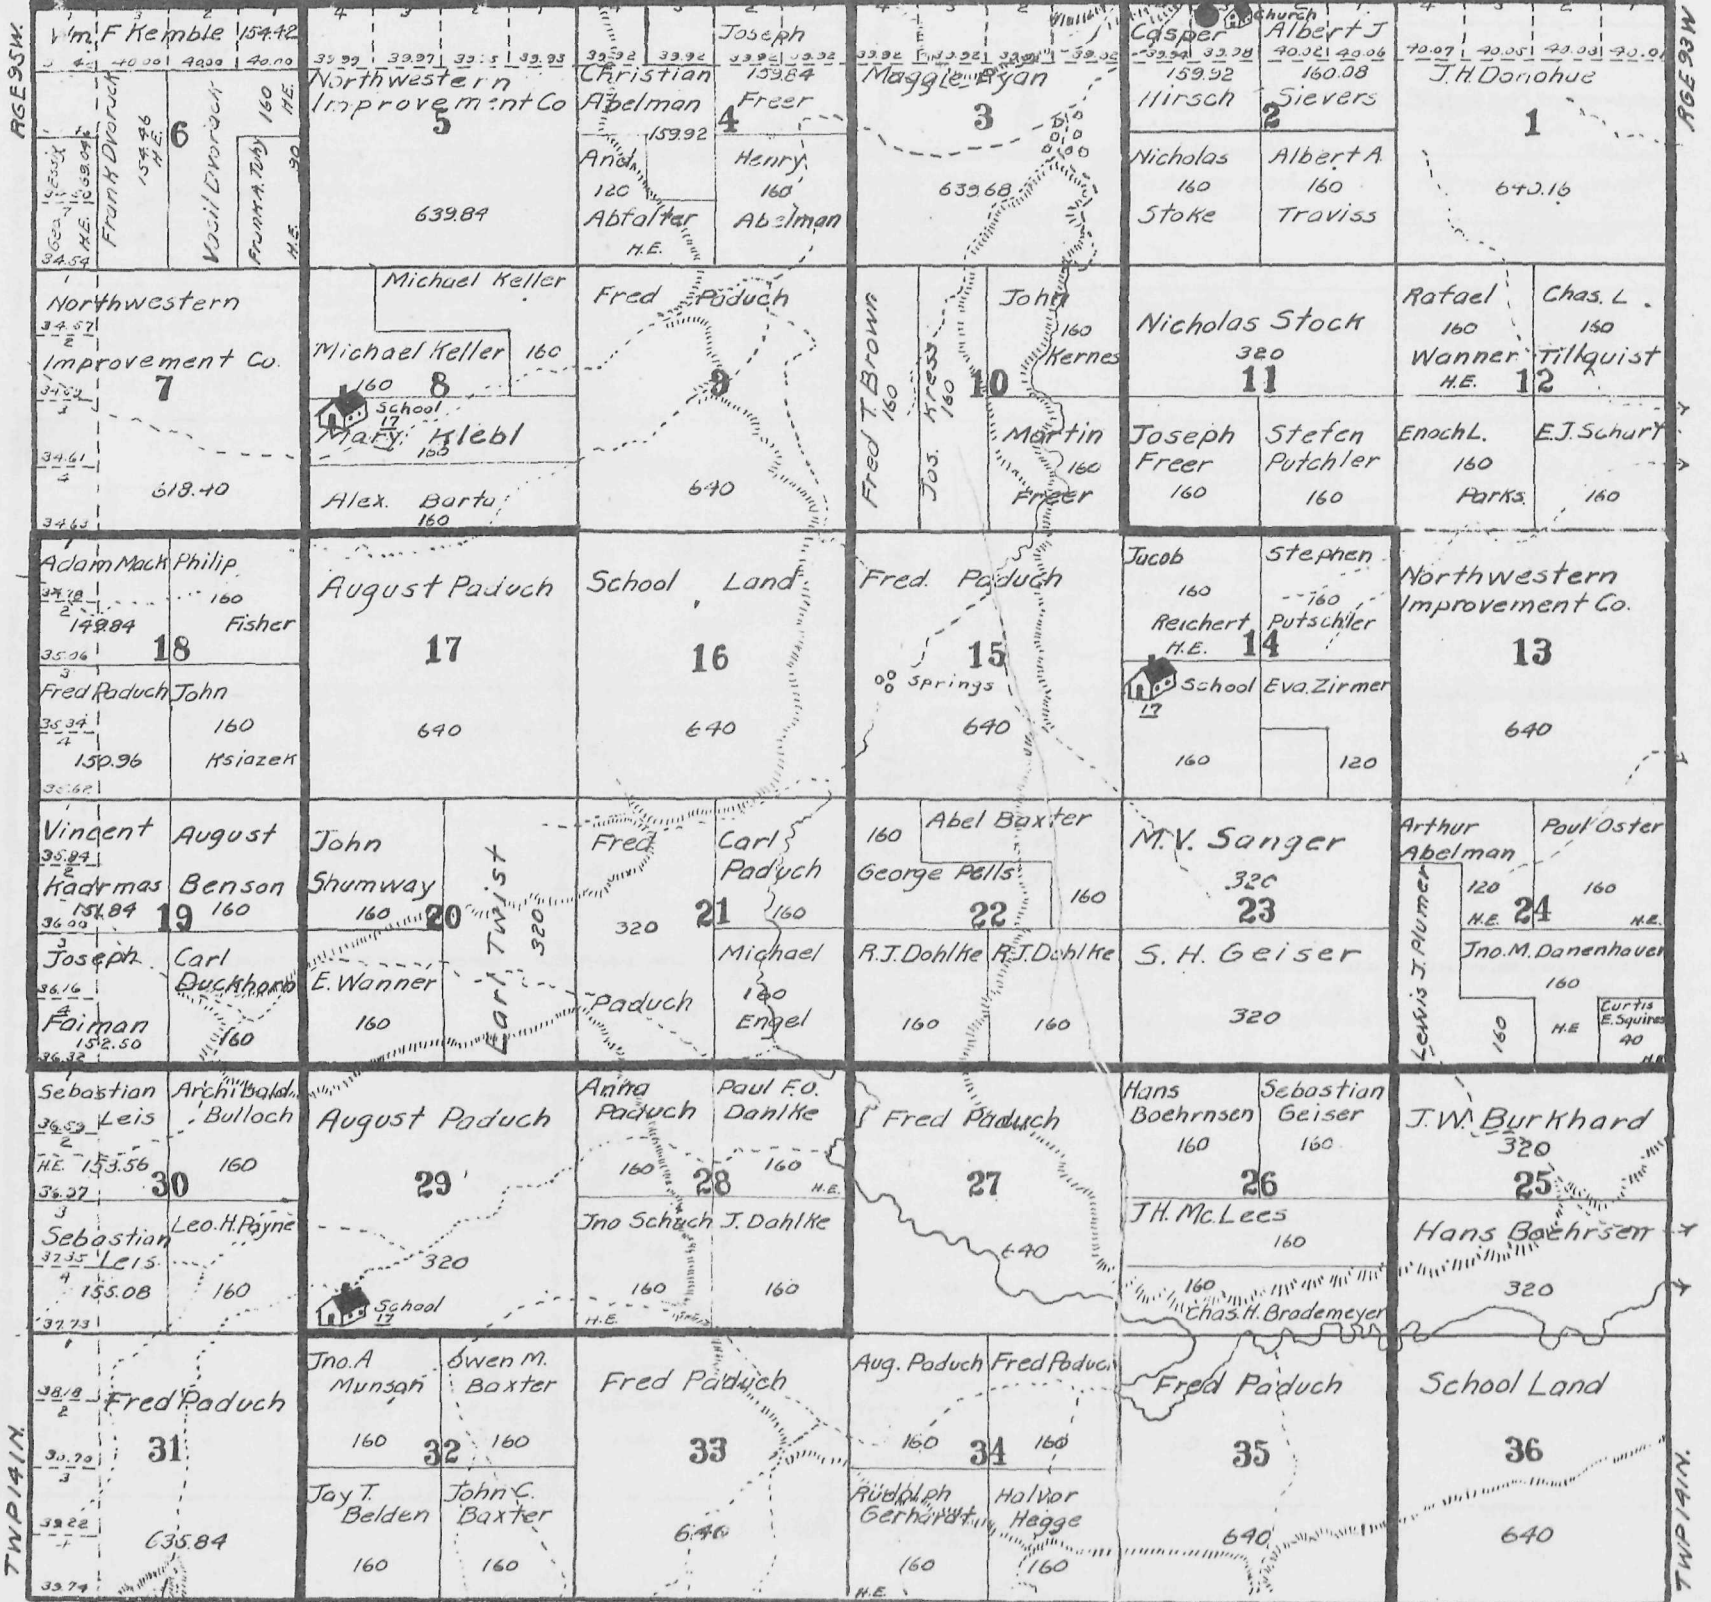 RGE 95 W.
RGE 93 W
TWP 141 N.
TWP 141 N.
Wm F Kemble 154.42
40.00 40.00 40.00
Frank Dvorack
154.46
H.E.
6
Vasil Dvorack
160
H.E.
Frank A. Tuhy
H.E. 90
34.54
4 3 2 1
39.99 39.97 39.95 39.93
Northwestern
Improvement Co
5
639.84
39.92 39.92 39.92 39.92
Christian
Abelman
159.92
Joseph
159.84
Freer
4
And.
120
Abfalter
H.E.
Henry
160
Abelman
39.92 39.92
Maggie Ryan
3
639.68
Church
Casper
39.94 39.98
159.92
Hirsch
Albert J
40.02 40.06
160.08
Sievers
2
Nicholas
160
Stoke
Albert A.
160
Traviss
40.07 40.05 40.03 40.01
J. H. Donahue
1
640.16
Northwestern
34.57
2
Improvement Co.
7
34.59
3
34.61
4
618.40
34.63
Michael Keller
Michael Keller 160
160 8
School
17
Mary Klebl
160
Alex. Bartu
160
Fred Paduch
9
640
Fred T. Brown
160
Jos. Kress
160
John
160
Kernes
10
Martin
160
Freer
Nicholas Stock
320
11
Joseph
Freer
160
Stefen
Putchler
160
Rafael
160
Wanner
H.E.
Chas. L.
160
Tillquist
12
Enoch L.
160
Parks
E.J. Schurt
160
Adam Mack
34.78
2
149.84
35.06
3
Philip
160
Fisher
18
Fred Paduch
35.34
4
150.96
35.62
John
160
Ksiazek
August Paduch
17
640
School Land
16
640
Fred. Paduch
15
Springs
640
Jacob
160
Reichert
H.E.
Stephen
160
Putschler
14
School
17
160
Eva. Zirmer
120
Northwestern
Improvement Co.
13
640
Vincent
35.84
2
Kadrmas
151.84
36.00
3
August
Benson
160
19
Joseph
36.16
4
Faiman
152.50
36.32
Carl
Duckhorn
160
John
Shumway
160
20
Earl Twist
320
E. Wanner
160
Fred
320
Paduch
Carl
Paduch
160
21
Michael
160
Engel
160
Abel Baxter
George Pells
160
22
R.J. Dohlke
160
R.J. Dahlke
160
M.V. Sanger
320
23
S. H. Geiser
320
Arthur
Abelman
120
H.E.
Paul Oster
160
H.E.
24
Lewis J. Plumer
160
Jno. M. Danenhauer
160
H.E
Curtis
E. Squires
40
H.E
Sebastian
Leis
36.59
2
H.E. 153.56
36.97
3
Archibald
Bulloch
160
30
Sebastian
37.35
4
Leis
155.08
37.73
Leo. H. Payne
160
August Paduch
29
320
School
17
Anna
Paduch
160
Paul F.O.
Dahlke
160
H.E.
28
Jno Schuch
160
H.E.
J. Dahlke
160
Fred Paduch
27
640
Hans
Boehrnsen
160
Sebastian
Geiser
160
26
J.H. Mc.Lees
160
160
Chas. H. Brademeyer
J.W. Burkhard
320
25
Hans Boehrsen
320
38.18
2
Fred Paduch
31
3
39.22
635.84
39.74
Jno. A
Munson
160
Owen M.
Baxter
160
32
Jay T.
Belden
160
John C.
Baxter
160
Fred Paduch
33
640
Aug. Paduch
160
Fred Paduch
160
34
Rudolph
Gerhardt
160
H.E.
Halvor
Hegge
160
Fred Paduch
35
640
School Land
36
640